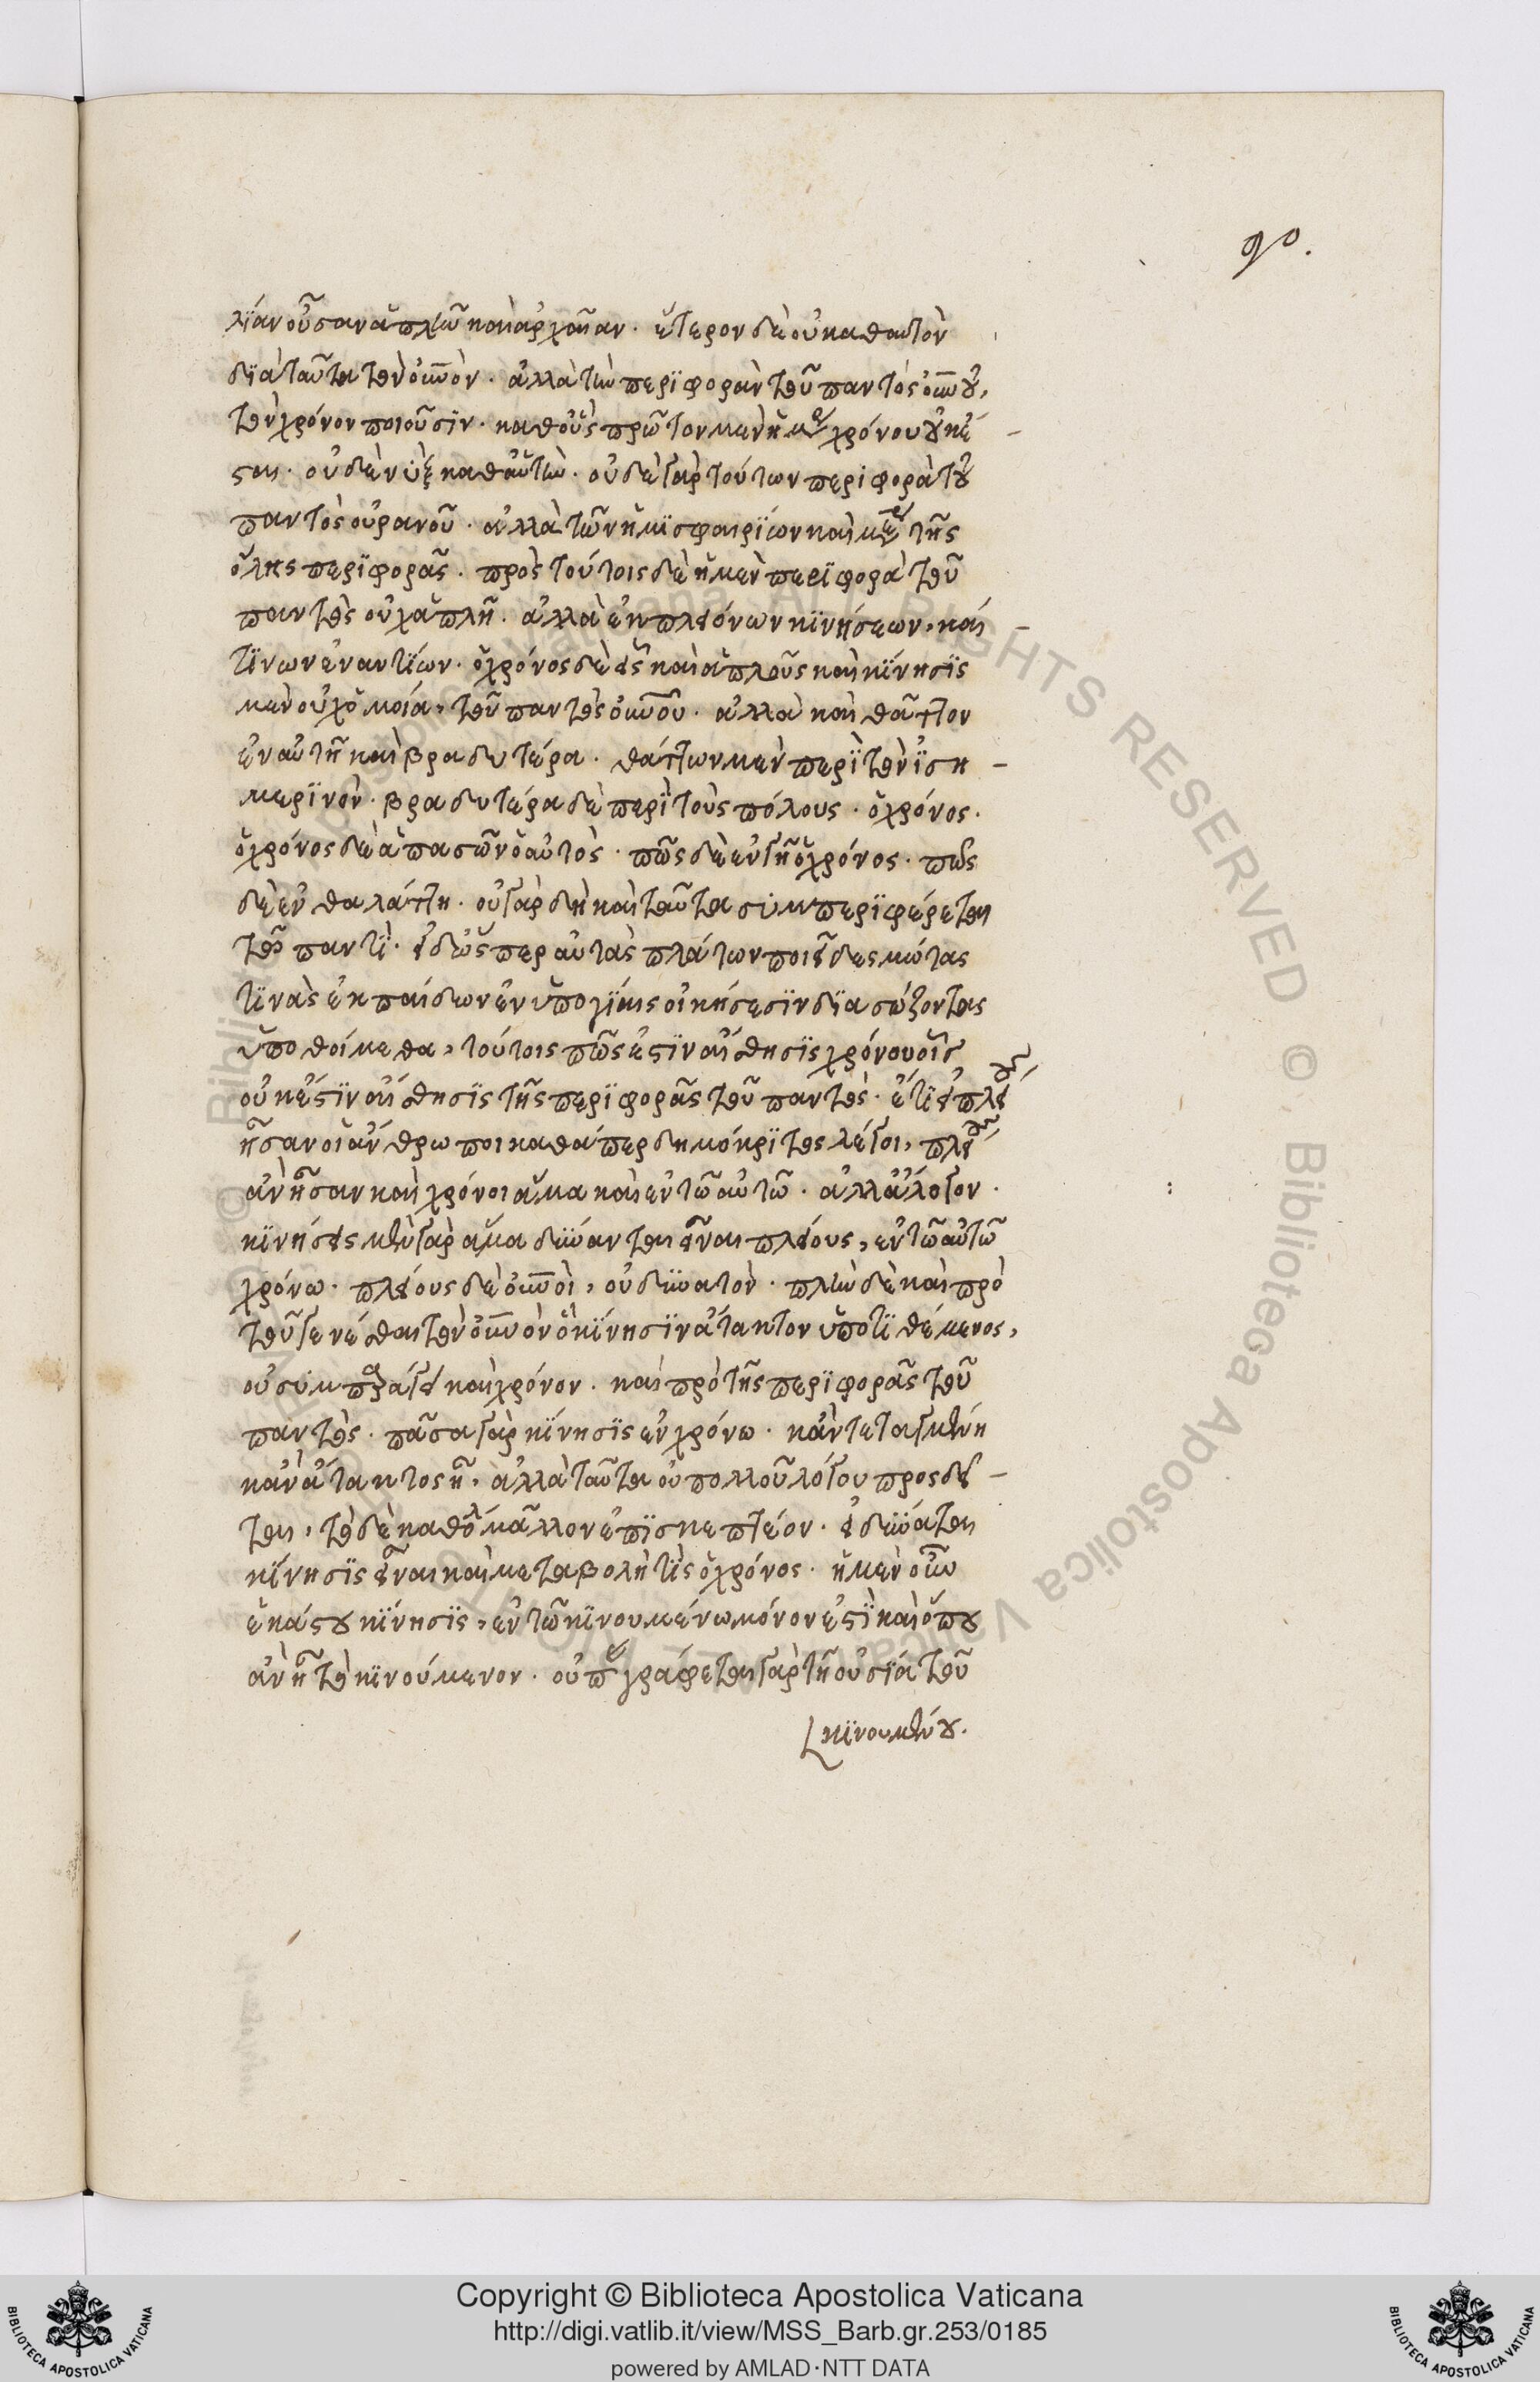 90.
λίαν οὖσαν ἁπλῶ καὶ ἀρχαίαν. ἕτερον δὲ οὐ καθαυτὸν
διὰ ταῦτα τὸν οὐνὸν. ἀλλὰ τὴν περιφορὰν τοῦ παντὸς οὐνοῦ,
τὸν χρόνον ποιοῦσιν. καθ οὓς πρῶτον μὲν ἡμέρα χρόνου οὐκέ
σαι. οὐδὲ νὺξ καθ αὑτὴν. οὐδὲ γὰρ τούτων περιφορὰ τοῦ
παντὸς οὐρανοῦ. ἀλλὰ τῶν ἡμισφαιρίων καὶ μέρη τῆς
ὅλης περιφορᾶς. πρὸς τούτοις δὲ ἡ μὲν περιφορὰ τοῦ
παντὸς οὐχ ἁπλῆ. ἀλλὰ ἐκ πλειόνων κινήσεων, καί
τινων ἐναντίων. ὁ χρόνος δὲ εἷς καὶ ἁπλοῦς καὶ κίνησις
μὲν οὐχ ὁμοία, τοῦ παντὸς οὐνοῦ. ἀλλὰ καὶ θᾶττον
ἐν αὐτῆ καὶ βραδυτέρα. θάττων μὲν περὶ τὸν ἰση
μερινὸν. βραδυτέρα δὲ περὶ τοὺς πόλους. ὁ χρόνος.
ὁ χρόνος δὲ ἁπασῶν ὁ αὐτὸς. πῶς δὲ ἐν γῆ ὁ χρόνος. πῶς
δὲ ἐν θαλάττη. οὐ γὰρ δὴ καὶ ταῦτα συμπεριφέρεται
τῶ παντὶ. εἰ δ ὥσπερ αὐτὸς πλάτων ποιεῖ δεσμώτας
τινὰς ἐκ παίδων ἐν ὑπογίαις οἰκήσεσιν διασώζοντας
ὑποθοίμεθα, τούτοις πῶς ἐστιν αἴσθησις χρόνου οἷς
οὐκ ἔστιν αἴσθησις τῆς περιφορᾶς τοῦ παντὸς. ἔτι εἰ πλείους
ἦσαν οἱ ἄνθρωποι καθάπερ δημόκριτος λέγοι, πλείους
ἂν ἦσαν καὶ χρόνοι ἅμα καὶ ἐν τῶ αὐτῶ. ἀλλ ἄλογον.
κινήσεις μὲν γὰρ ἅμα δύνανται εἶναι πλείους, ἐν τῶ αὐτῶ
χρόνω. πλείους δὲ οὐνοὶ, οὐ δυνατὸν. πλὴν δὲ καὶ πρὸ
τοῦ γενέσθαι τὸν οὐνὸν ὁ κίνησιν ἄτακτον ὑποτιθέμενος,
οὐ συμπαράγει καὶ χρόνον. καὶ πρὸ τῆς περιφορᾶς τοῦ
παντὸς. πᾶσα γὰρ κίνησις ἐν χρόνω. κἂν τεταγμένη
κἂν ἄτακτος ἦ. ἀλλὰ ταῦτα οὐ πολλοῦ λόγου προσδεῖ
ται, τὸ δὲ καθόλου μᾶλλον ἐπισκεπτέον. εἰ δύναται
κίνησις εἶναι καὶ μεταβολή τις ὁ χρόνος. ἡ μὲν οὖν
ἑκάστου κίνησις, ἐν τῶ κινουμένω μόνον ἐστὶ καὶ ὅπου
ἂν ἦ τὸ κινούμενον. οὐ περιγράφεται γὰρ τῆ οὐσία τοῦ
κινουμένου.
Copyright © Biblioteca Apostolica Vaticana
http://digi.vatlib.it/view/MSS_Barb.gr.253/0185
powered by AMLAD·NTT DATA